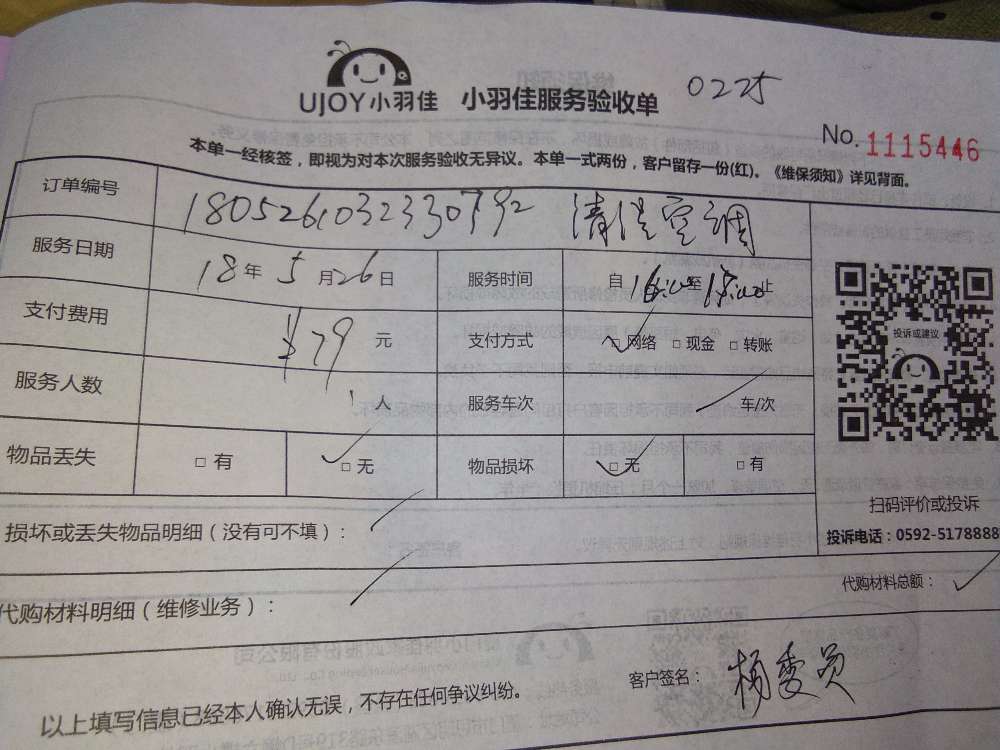 UJOY小羽佳 小羽佳服务验收单 0225
No. 1115446
本单一经核签，即视为对本次服务验收无异议。本单一式两份，客户留存一份(红)。《维保须知》详见背面。
订单编号 180526032330792 清洗空调
服务日期 18年5月26日 服务时间 自 至 止
支付费用 ¥79 元 支付方式 □网络 □现金 □转账
服务人数 1人 服务车次 车/次
物品丢失 □有 □无 物品损坏 □无 □有
投诉或建议
扫码评价或投诉
投诉电话：0592-5178888
损坏或丢失物品明细（没有可不填）：
代购材料明细（维修业务）：
代购材料总额：
以上填写信息已经本人确认无误，不存在任何争议纠纷。
客户签名：杨委员